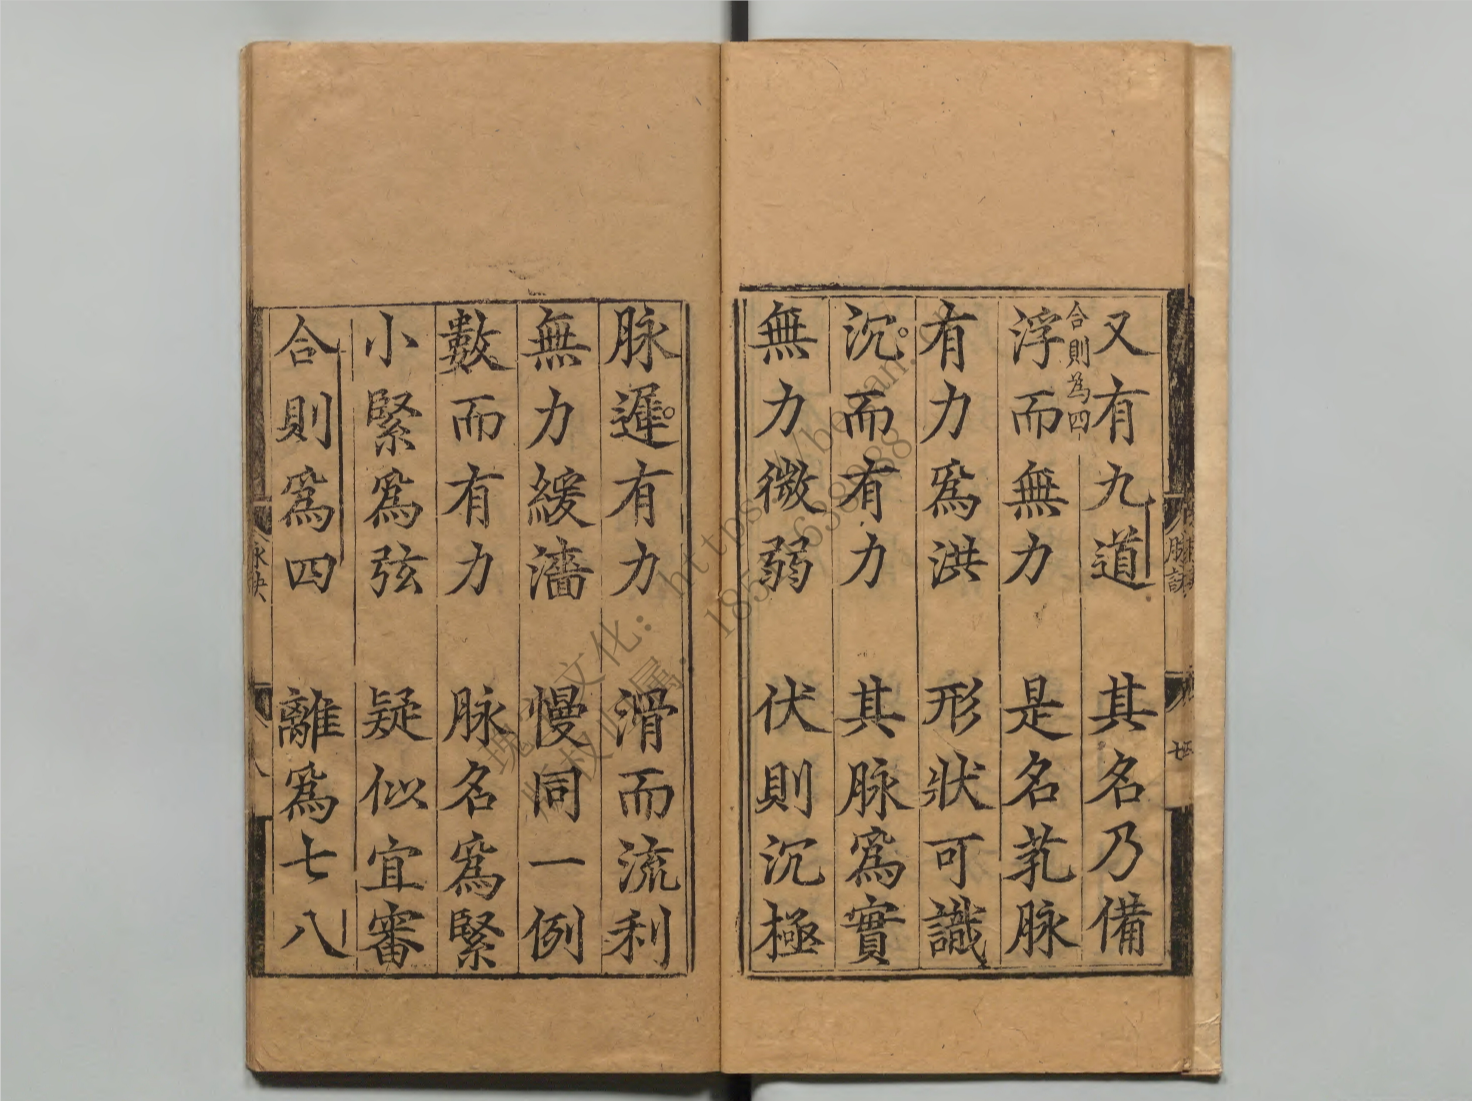 又有九道　其名乃備
合則為四
浮而無力　是名芤脉
有力爲洪　形狀可識
沉而有力　其脉爲實
無力微弱　伏則沉極
脉遲有力　滑而流利
無力緩濇　慢同一例
數而有力　脉名爲緊
小緊爲弦　疑似宜審
合則爲四　離爲七八
脉訣